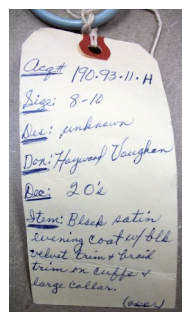 Acq# 190.93.11.H
Size: 8-10
Des: unknown
Don: Haywood Vaughan
Dec: 20's
Item: Black satin
evening coat w/ blk
velvet trim & braid
trim on cuffs &
large collar.
(over)